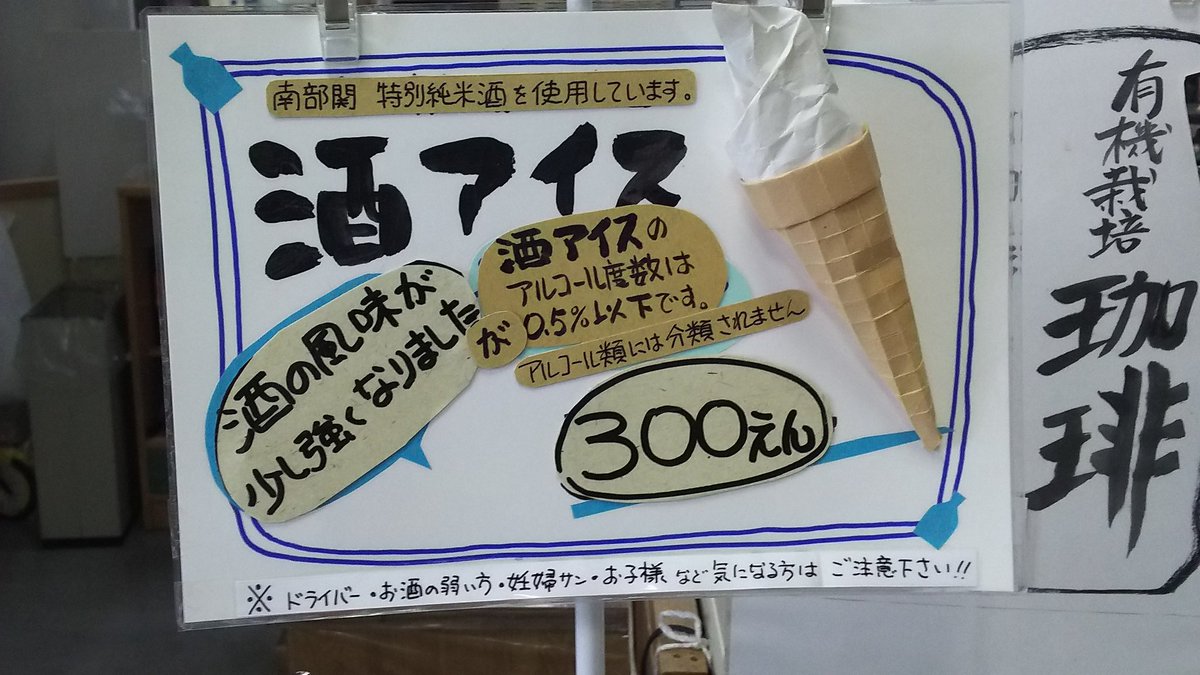 南部関 特別純米酒を使用しています。
酒アイス
酒の風味が
少し強くなりました
が
酒アイスの
アルコール度数は
0.5%以下です。
アルコール類には分類されません
300えん
※ ドライバー・お酒の弱い方・妊婦サン・お子様、など気になる方は ご注意下さい!!
有機栽培
珈琲